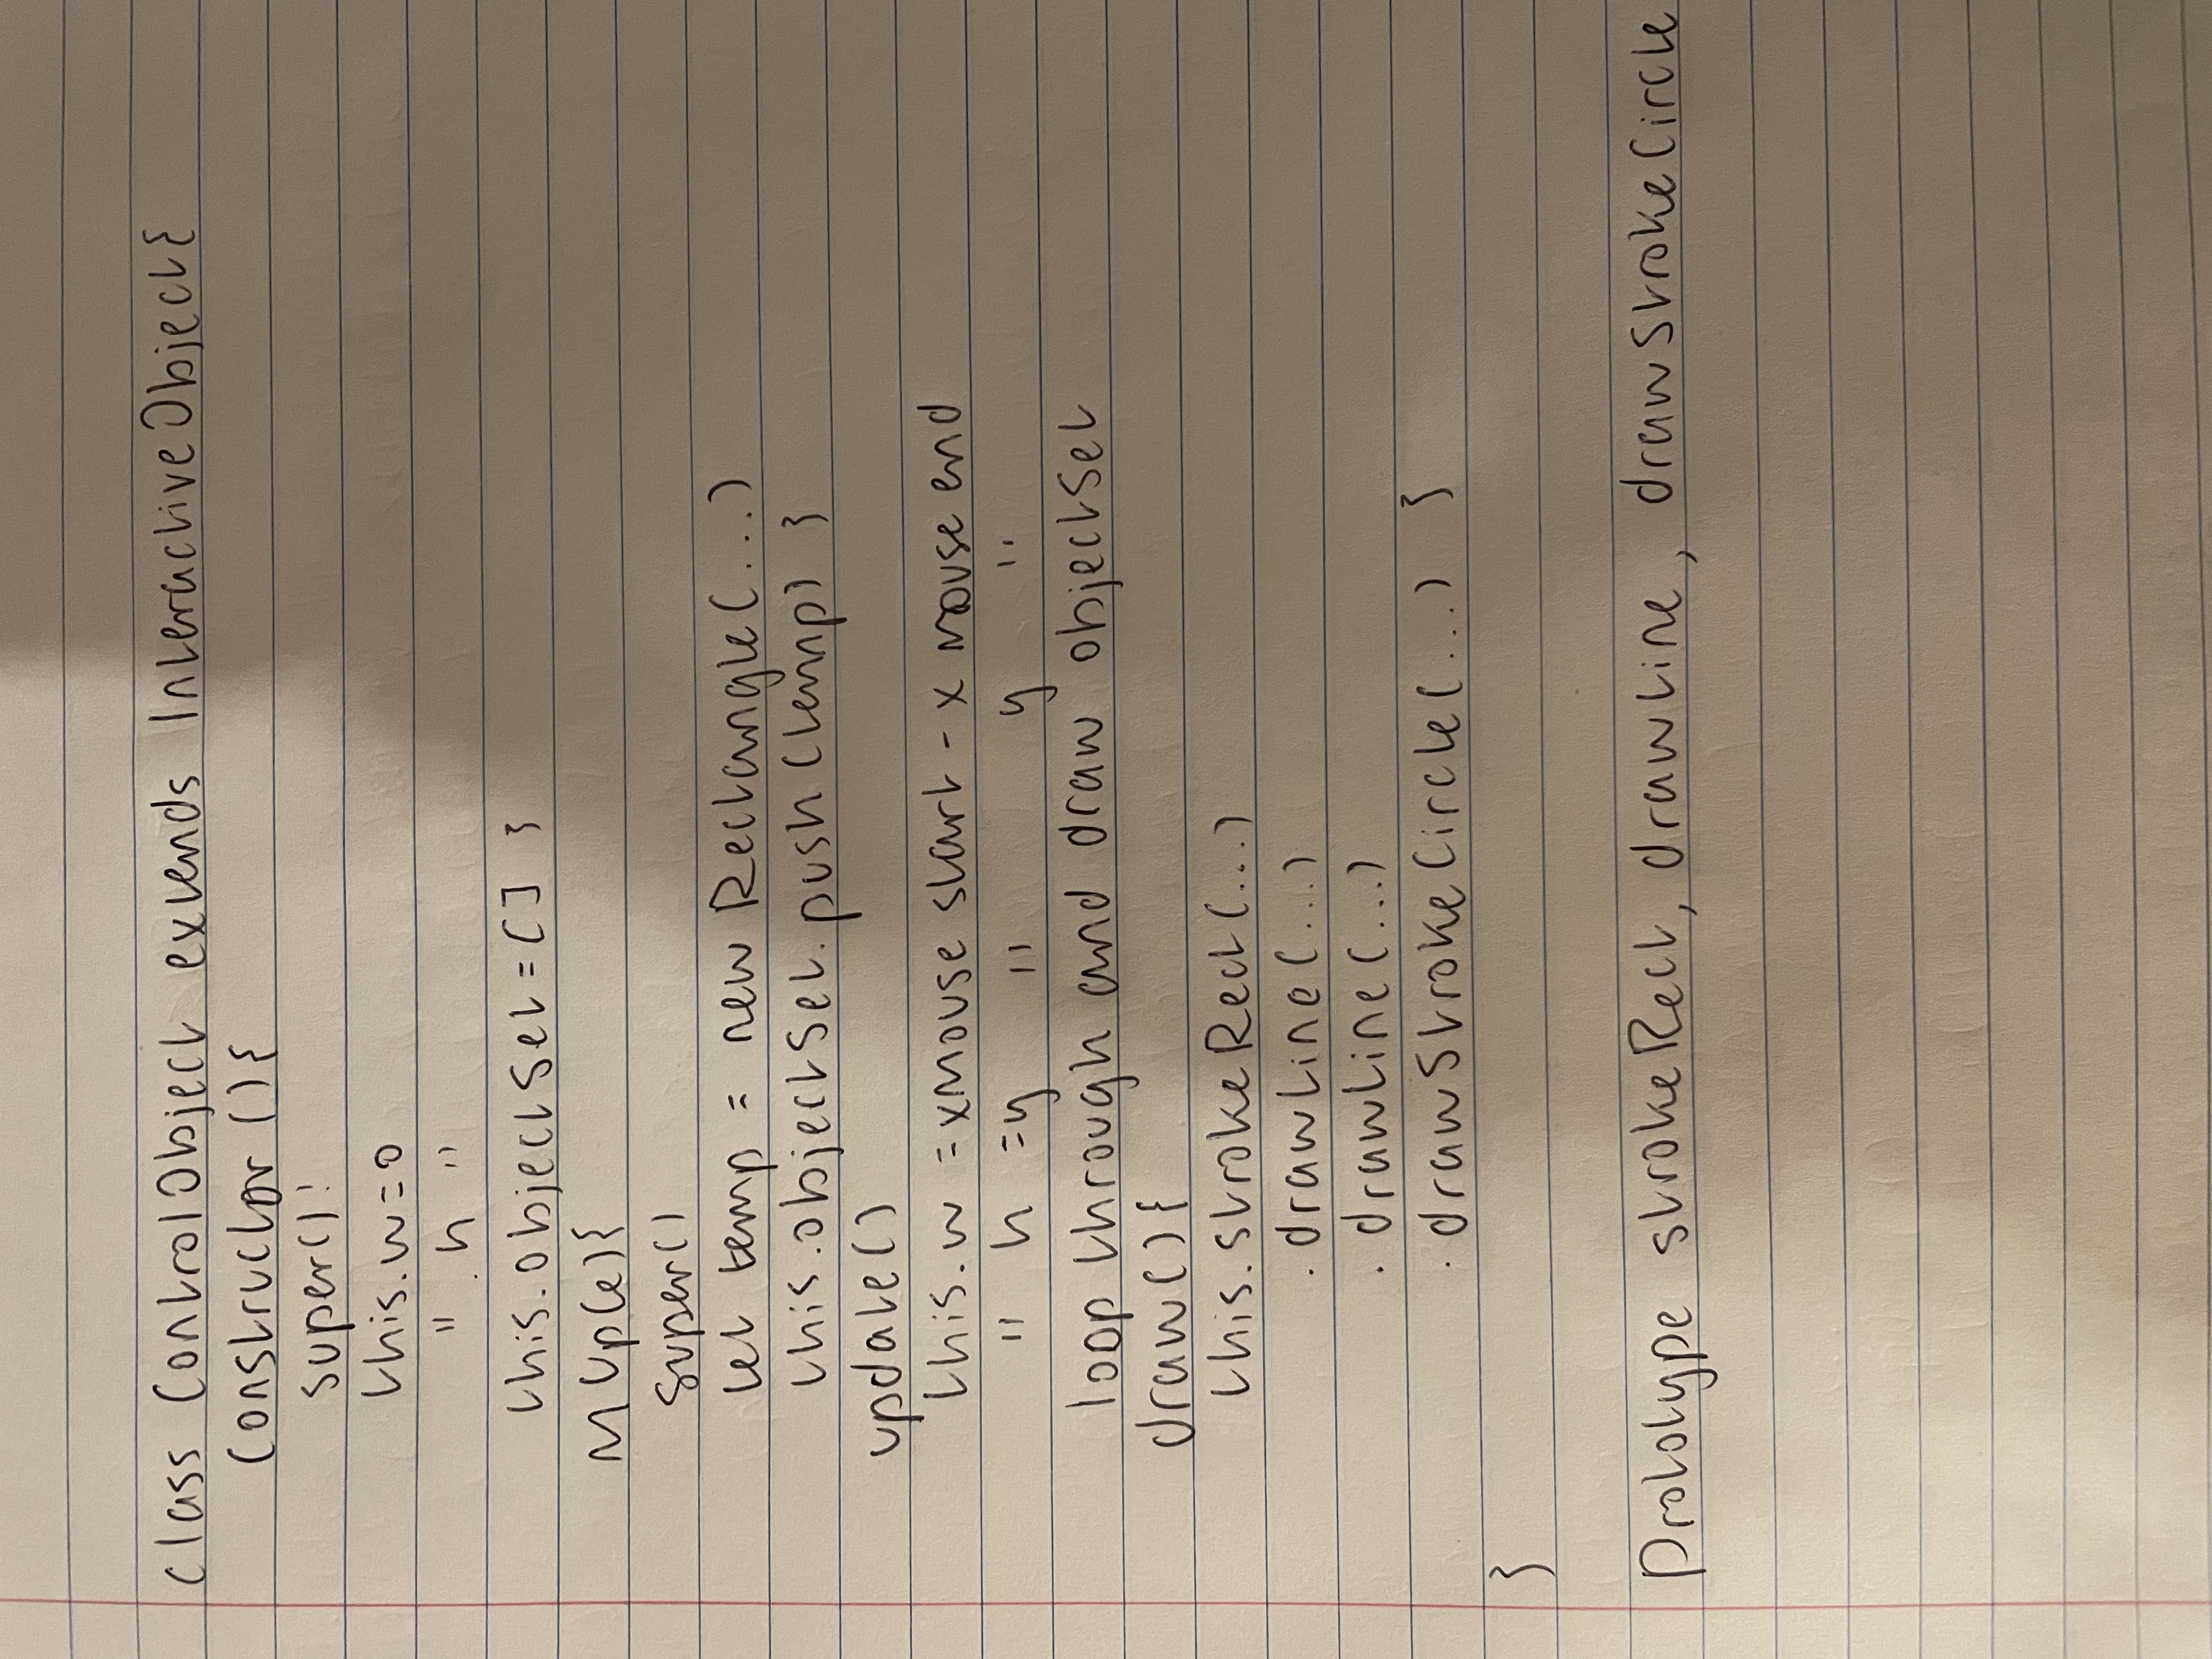 class ControlObject extends InteractiveObject{
constructor (){
super()!
this.w=0
" .h "
this.objectSet=[] }
MUp(e){
super()
let temp = new Rectangle(...)
this.objectSet.push(temp) }
update()
this.w =xMouse start - x mouse end
" h =y " y "
loop through and draw objectSet
draw(){
this.strokeRect(...)
.drawLine(...)
.drawLine(...)
.drawStrokeCircle(...) }
}
Prototype strokeRect, drawLine, drawStrokeCircle